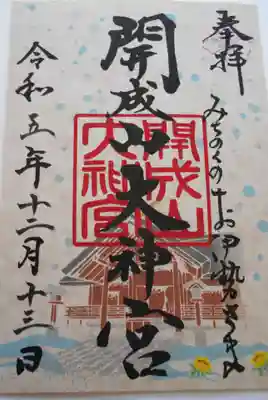 奉拝
みちのくのお伊勢さま
開成山大神宮
開成山
大神宮
令和五年十二月十三日